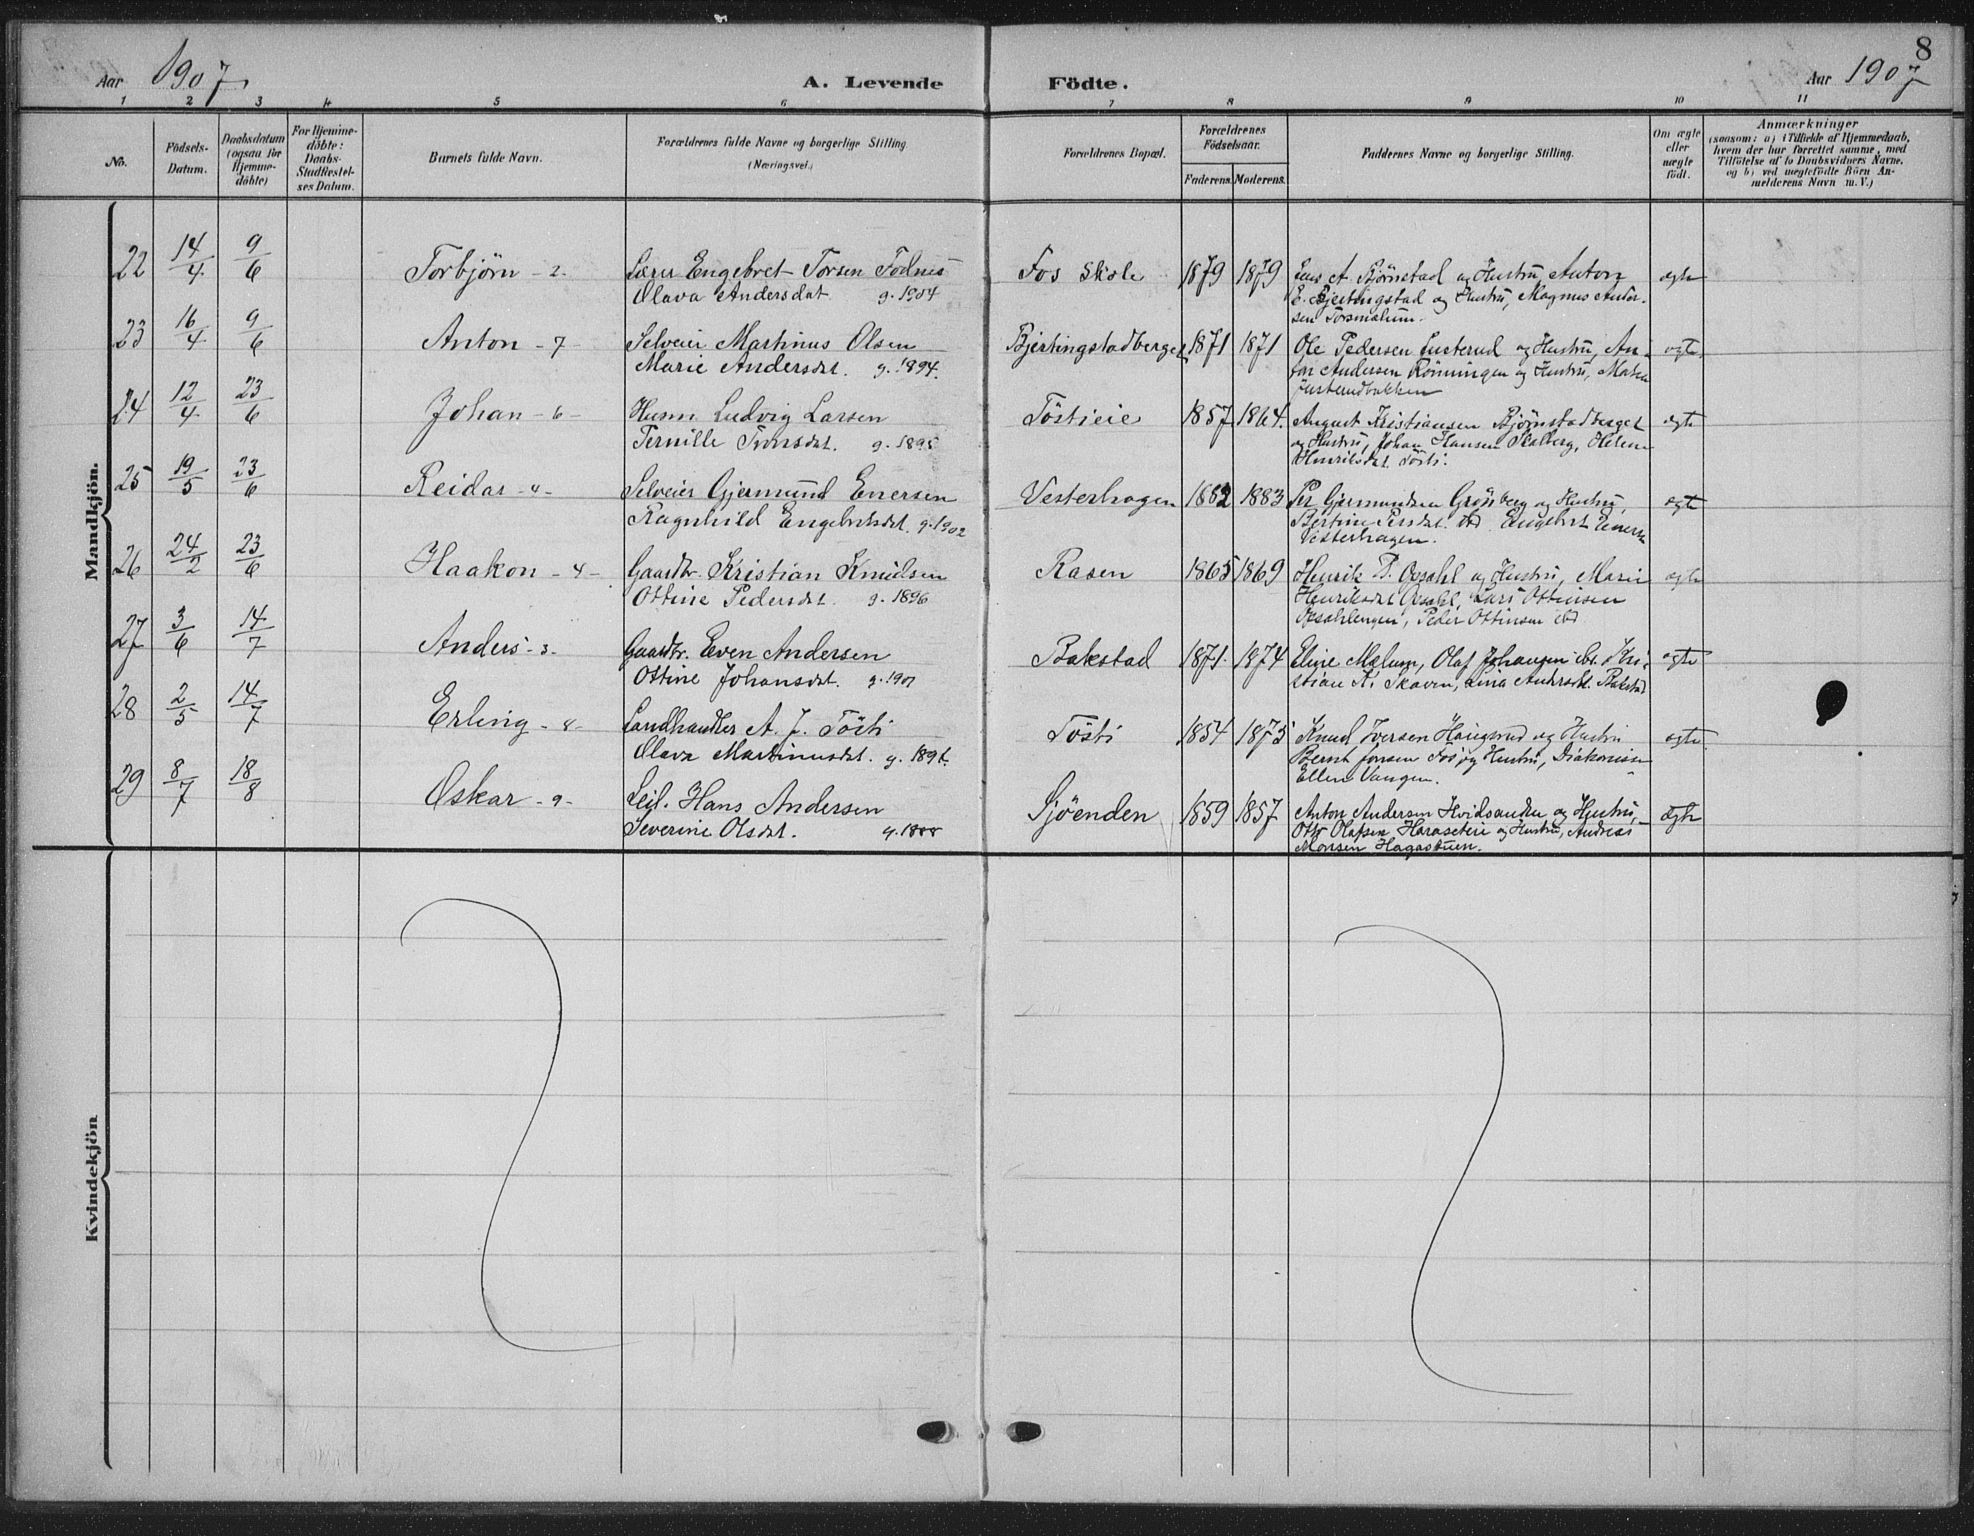 8
Aar 1907 A. Levende Födte. Aar 1907
1 2 3 4 5 6 7 8 9 10 11
No.
Födsels-
Datum.
Daabsdatum
(ogsaa for
Hjemme-
döbte)
For Hjemme-
döbte:
Daabs-
Stadfæstel-
ses Datum.
Barnets fulde Navn.
Forældrenes fulde Navne og borgerlige Stilling
(Næringsvei.)
Forældrenes Bopæl.
Forældrenes
Födselsaar.
Faderens. Moderens.
Faddernes Navne og borgerlige Stilling.
Om ægte
eller
uægte
födt.
Anmærkninger
(saasom: a) i Tilfælde af Hjemmedaab,
hvem der har forrettet samme, med
Tilföielse af to Daabsvidners Navne,
og b) ved uægtefödte Börn An-
melderens Navn m. V.)
Mandkjön.
22 14/4 9/6 Torbjørn - 2 - Lærer Engebret Torsen Fodnes Fos Skole 1879 1879 Bjørnstad og Hustru, Anton ægte
Olava Andersdat. g. 1904 E. Bjertingstad og Hustru, Magnus Ander-
sen
23 16/4 9/6 Anton - 7 - Selveier Martinus Olsen Bjertingstadberget 1871 1871 Ole Pedersen Lusterud og Hustru, An- ægte
Marie Andersdat. g. 1894. ton Andersen Rönningen og Hustru,
24 12/4 23/6 Johan - 6 - Husm. Ludvig Larsen Töstieie 1857 1864. August Kristiansen Bjørnstadberget ægte
Pernille g. 1895 og Hustru, Johan Hansen Helene
Henriksdat. Tösti.
25 19/5 23/6 Reidar - 4 - Selveier Gjermund Enersen Vesterhagen 1882 1883 Per Gjermundsen Grönberg og Hustru, ægte
Ragnhild Engebretsdat. g. 1902 Bertine Persdat. ibd. Engebret Enersen
Vesterhagen.
26 24/2 23/6 Haakon - 4 - Gaardbr. Kristian Knudsen Rasen 1865 1869 Henrik P. Opsahl og Hustru, Marie ægte
Ottine Pedersdat. g. 1896 Henriksdat. Opsahl, Lars Ottinsen
Opsahlengen, Peder Ottinsen ibd.
27 3/6 14/7 Anders - 3 - Gaardbr. Even Andersen Bakstad 1871. 1874 Eline Mælum, Olaf Johansen ibd. Kri- ægte
Ottine Johansdat. g. 1901 stian K. Skaven, Lina Andersdat. Bakstad
28 2/5 14/7 Erling - 8 - Landhandler A. J. Tösti Tösti 1854 1875 Knud Iversen Haugsrud og Hustru ægte
Olava Martinusdat. g. 1896. Bernt Jonsen Fos og Hustru, Diakonisse
Ellen Vangen.
29 8/7 18/8 Oskar - 9 - Leil. Hans Andersen Sjöenden 1859 1857 Anton Andersen Hvidsanden og Hustru, ægte
Severine Olsdat. g. 1888 Otto Olafsen Haraseteie og Hustru, Andreas
Monsen Hagastuen.
Kvindekjön